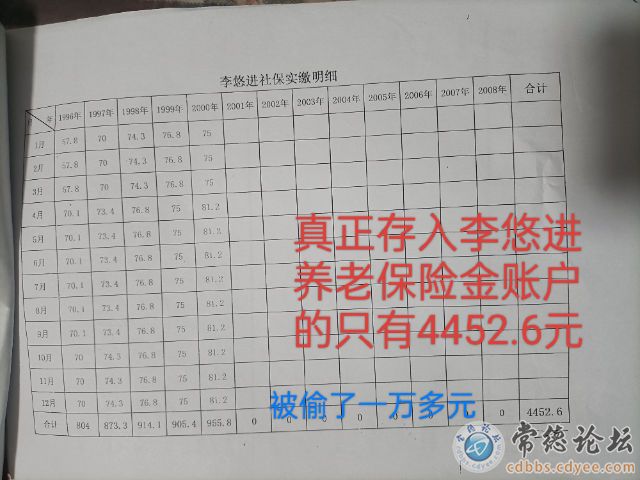 李悠进社保实缴明细
年 1996年 1997年 1998年 1999年 2000年 2001年 2002年 2003年 2004年 2005年 2006年 2007年 2008年 合计
1月 57.8 70 74.3 76.8 75
2月 57.8 70 74.3 76.8 75
3月 57.8 70 74.3 76.8 75
4月 70.1 73.4 76.8 75 81.2
5月 70.1 73.4 76.8 75 81.2
6月 70.1 73.4 76.8 75 81.2
7月 70.1 73.4 76.8 75 81.2
8月 70.1 73.4 76.8 75 81.2
9月 70.1 73.4 76.8 75 81.2
10月 70 74.3 76.8 75 81.2
11月 70 74.3 76.8 75 81.2
12月 70 74.3 76.8 75 81.2
合计 804 873.3 914.1 905.4 955.8 0 0 0 0 0 0 0 4452.6
真正存入李悠进
养老保险金账户
的只有4452.6元
被偷了一万多元
常德论坛
cdbbs.cdyee.com